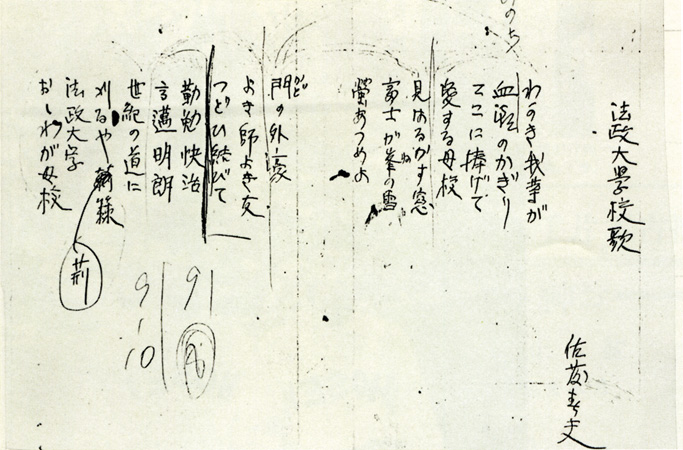 法政大學校歌
佐藤春夫
のち
わかき我等が
血潮のかぎり
ここに捧げて
愛する母校
見はるかす窓
富士が峯の雪
ね
螢あつめよ
門の外濠
かど
よき師よき友
つどひ結びて
勤勉快活
高邁明朗
世紀の道に
刈るや
荊
法政大学
おゝわが母校
91
9-10